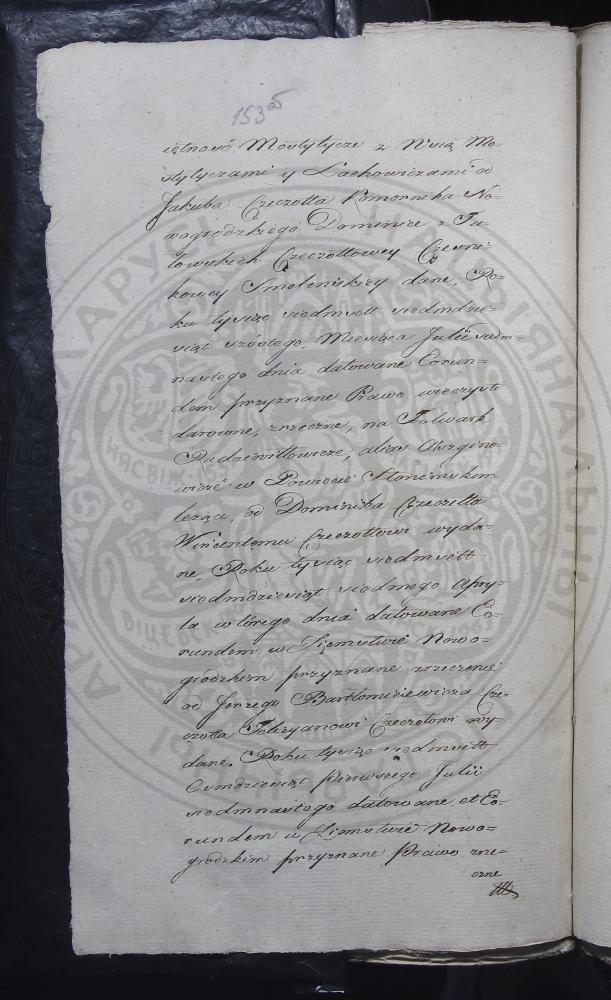 153 об
iętność Mostytycze z Wsią Mo-
stytyczami y Lachowiczami od
Jakuba Czeczotta Komornika No-
wogrodzkiego Dominice z Tu-
towskich Czeczottowey Czesni-
kowey Smolenskiey dane, Ro-
ku tysiąc siedmset siedmdzie-
siąt szóstego, Miesiąca Julii siedm-
nastego dnia datowane Eorun-
dem przyznane Prawo wieczysto
darowne, zrzeczne, na Folwark
Radziwiłłowicze, alias
w Powiecie Słonimskim
leżące, od Dominika Czeczotta
Wincentemu Czeczottowi wyda-
ne, Roku tysiąc siedmsett
siedmdziesiąt siodmego Apry-
la wtórego dnia datowane Eo-
rundem w Ziemstwie Nowo-
grodzkim przyznane zrzeczenie
od Jerzego Bartłomieiewicza Cze-
czotta Felicyanowi Czeczotowi wy-
dane. Roku tysiąc siedmsett
Osmdziesiąt pierwszego Julii
siedmnastego datowane, et Eo-
rundem w Ziemstwie Nowo-
grodzkim przyznane Prawo zrze-
czne
НЯСВІЖ
ВІЦЕБСК